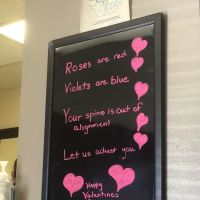 Roses are red
Violets are blue
Your spine is out of
alignment
Let us adust you
Happy
Valentines